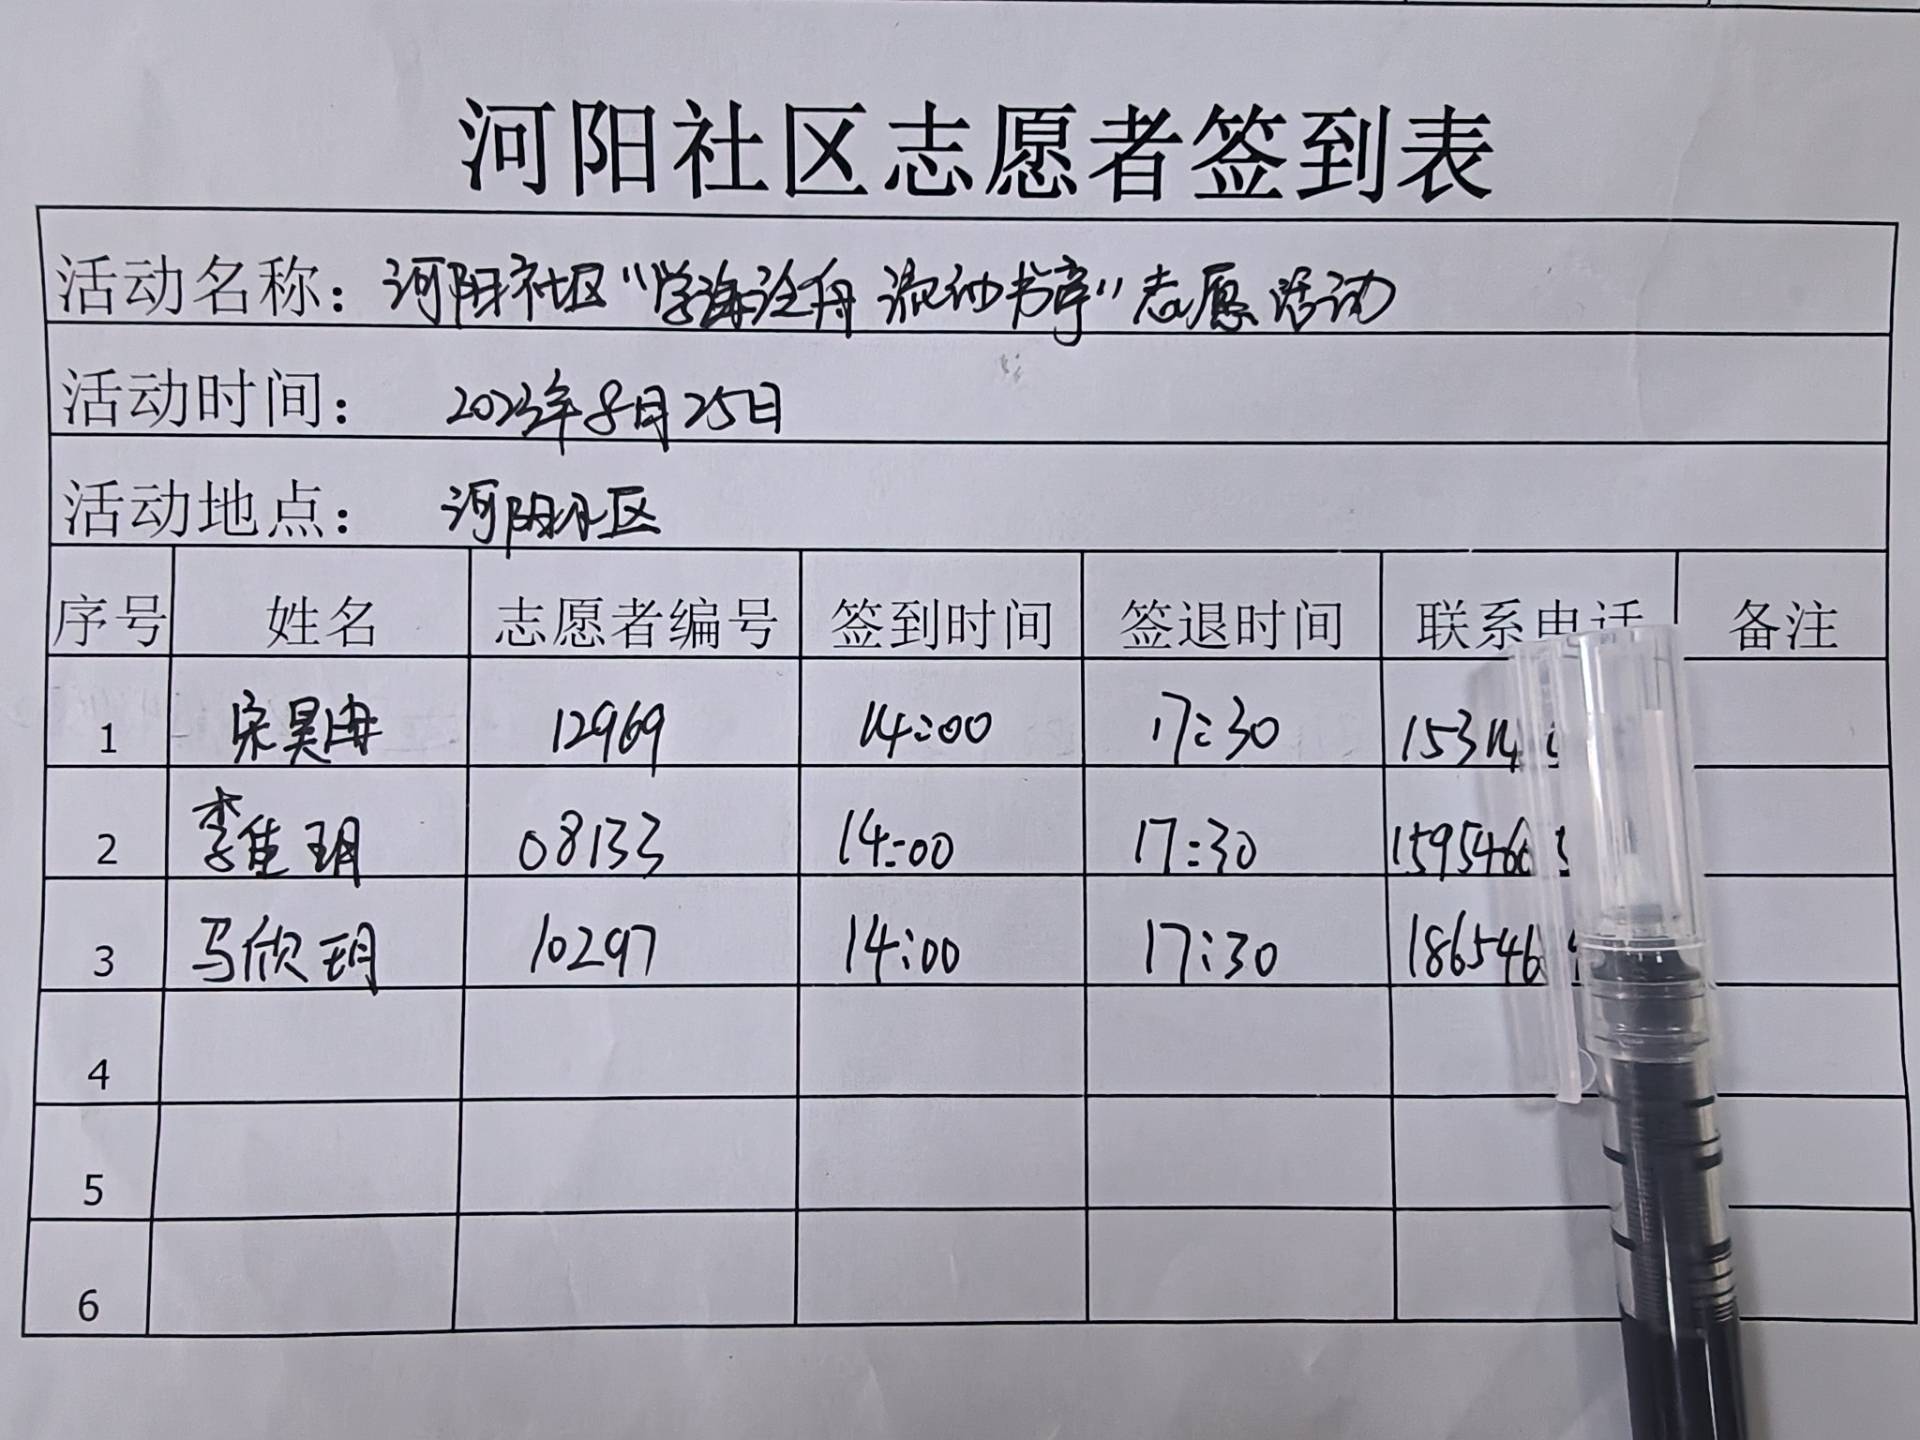 河阳社区志愿者签到表
活动名称：河阳社区“学海泛舟 流动书亭”志愿活动
活动时间： 2023年8月25日
活动地点： 河阳社区
序号 姓名 志愿者编号 签到时间 签退时间 联系电话 备注
1 宋昊冉 12969 14:00 17:30 15314
2 李佳玥 08133 14:00 17:30 1595466
3 马欣玥 10297 14:00 17:30 186546
4
5
6